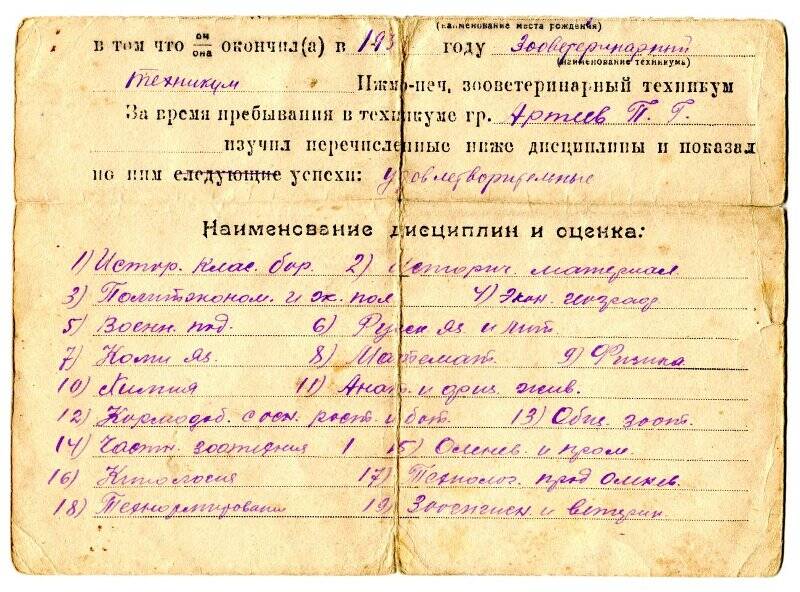 (наименование места рождения)
в том что он/она окончил(а) в 193 году Зооветеринарный
(наименование техникумь)
техникум Ижмо-печ, зооветеринарный техникум
За время пребывания в техникуме гр. Артеев П. Г.
изучил перечисленные ниже дисциплины и показал
по ним следующие успехи: удовлетворительные
Наименование дисциплин и оценка:
1) Истор. клас. бор. 2) Историч. материал.
3) Политэконом. и эк. пол 4) Экон. географ
5) Военн. под. 6) Русск яз. и лит.
7) Коми яз. 8) Математ. 9) Физика
10) Химия 11) Анат. и физ. жив.
12) Кормодоб. с осн. раст. и бот. 13) Общ. зоот.
14) Частн. зоотехния 15) Оленев. и пром.
16) Кинология 17) Технолог. прод оленев.
18) Технормировани 19) Зоогигиен и ветерин.